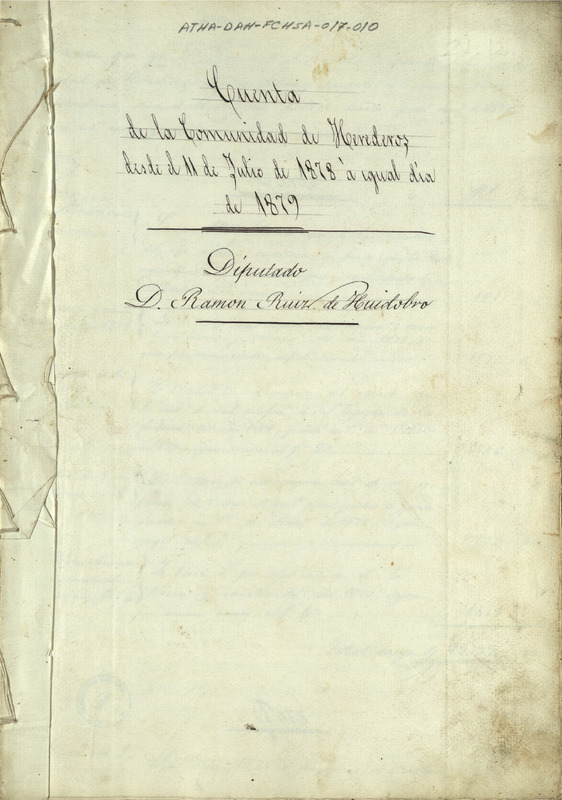 ATHA-DAH-FCHSA-017-010
Cuenta
de la Comunidad de Herederos
desde el 11 de Julio de 1878 à igual día
de 1879
Diputado
D. Ramon Ruiz de Huidobro